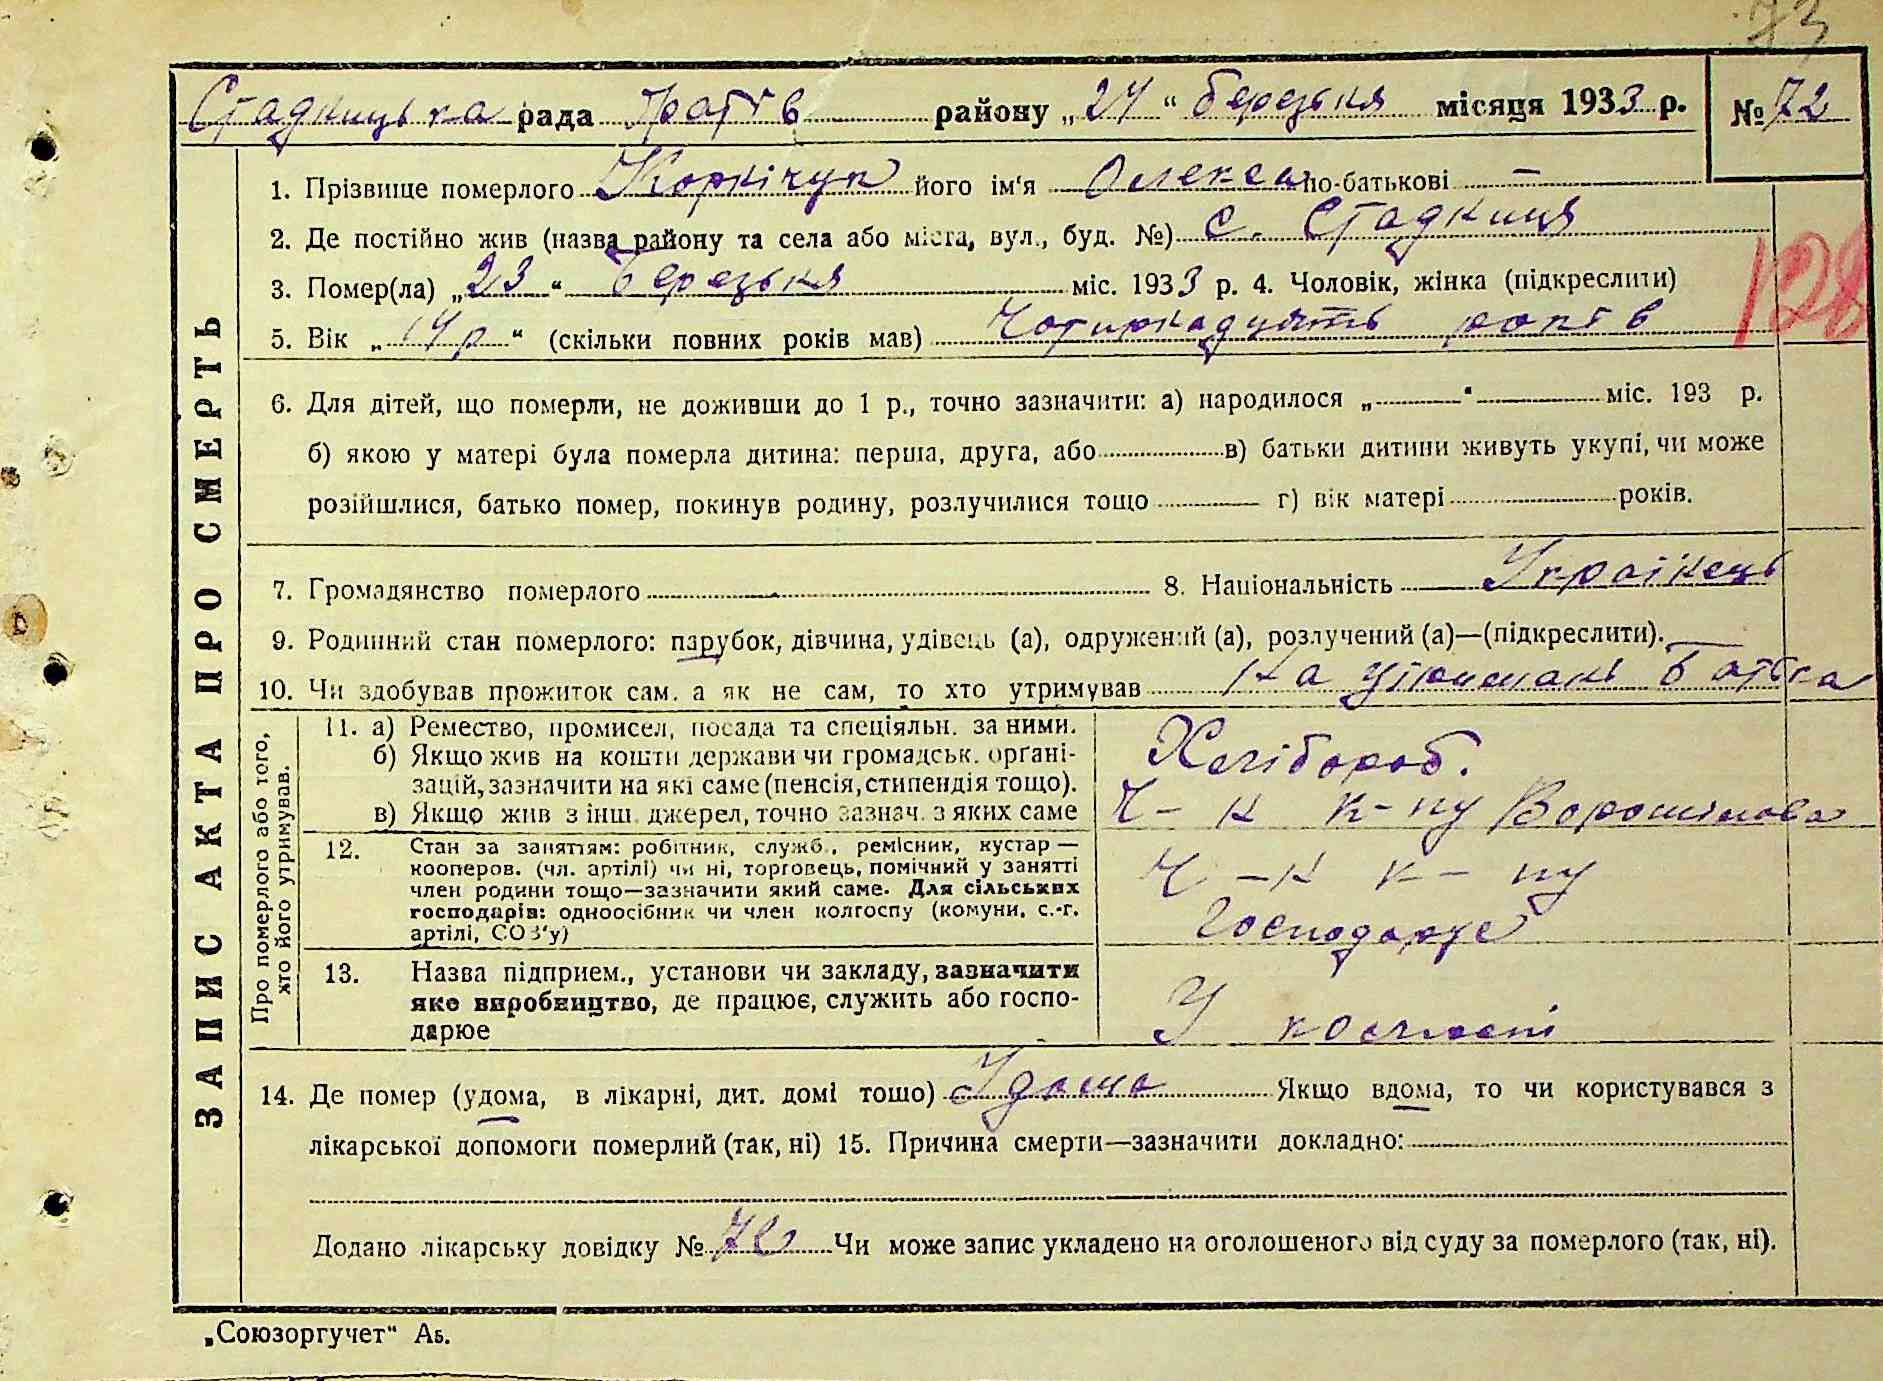 73
Стадницька рада Тетіїв району „24“ березня місяця 1933 р. № 72
ЗАПИС АКТА ПРО СМЕРТЬ
1. Прізвище померлого Корнічук його ім'я Олекса по-батькові —
2. Де постійно жив (назва району та села або міста, вул., буд. №) с. Стадниця
3. Помер(ла) „23“ Березня міс. 1933 р. 4. Чоловік, жінка (підкреслити)
128
5. Вік „14 р“ (скільки повних років мав) Чотирнадцять років
6. Для дітей, що померли, не доживши до 1 р., точно зазначити: а) народилося „ “ міс. 193 р.
б) якою у матері була померла дитина: перша, друга, або в) батьки дитини живуть укупі, чи може
розійшлися, батько помер, покинув родину, розлучилися тощо г) вік матері років.
7. Громадянство померлого 8. Національність Українець
9. Родинний стан померлого: парубок, дівчина, удівець (а), одружений (а), розлучений (а)—(підкреслити).
10. Чи здобував прожиток сам. а як не сам, то хто утримував На утримані Батька
Про померлого або того, хто його утримував.
11. а) Ремество, промисел, посада та спеціяльн. за ними.
б) Якщо жив на кошти держави чи громадськ. орґані-
зацій, зазначити на які саме (пенсія, стипендія тощо).
в) Якщо жив з інш. джерел, точно зазнач. з яких саме
Хлібороб.
Ч-н к-пу Ворошилова
12. Стан за заняттям: робітник, служб., ремісник, кустар —
кооперов. (чл. артілі) чи ні, торговець, помічний у занятті
член родини тощо—зазначити який саме. Для сільських
господарів: одноосібник чи член колгоспу (комуни, с.-г.
артілі, СОЗ'у)
Ч-н к-пу
Господарує
13. Назва підприєм., установи чи закладу, зазначити
яке виробництво, де працює, служить або госпо-
дарює
У колгоспі
14. Де помер (удома, в лікарні, дит. домі тощо) Удома Якщо вдома, то чи користувався з
лікарської допомоги померлий (так, ні) 15. Причина смерти—зазначити докладно:
Додано лікарську довідку № Чи може запис укладено на оголошеного від суду за померлого (так, ні).
„Союзоргучет“ Аб.